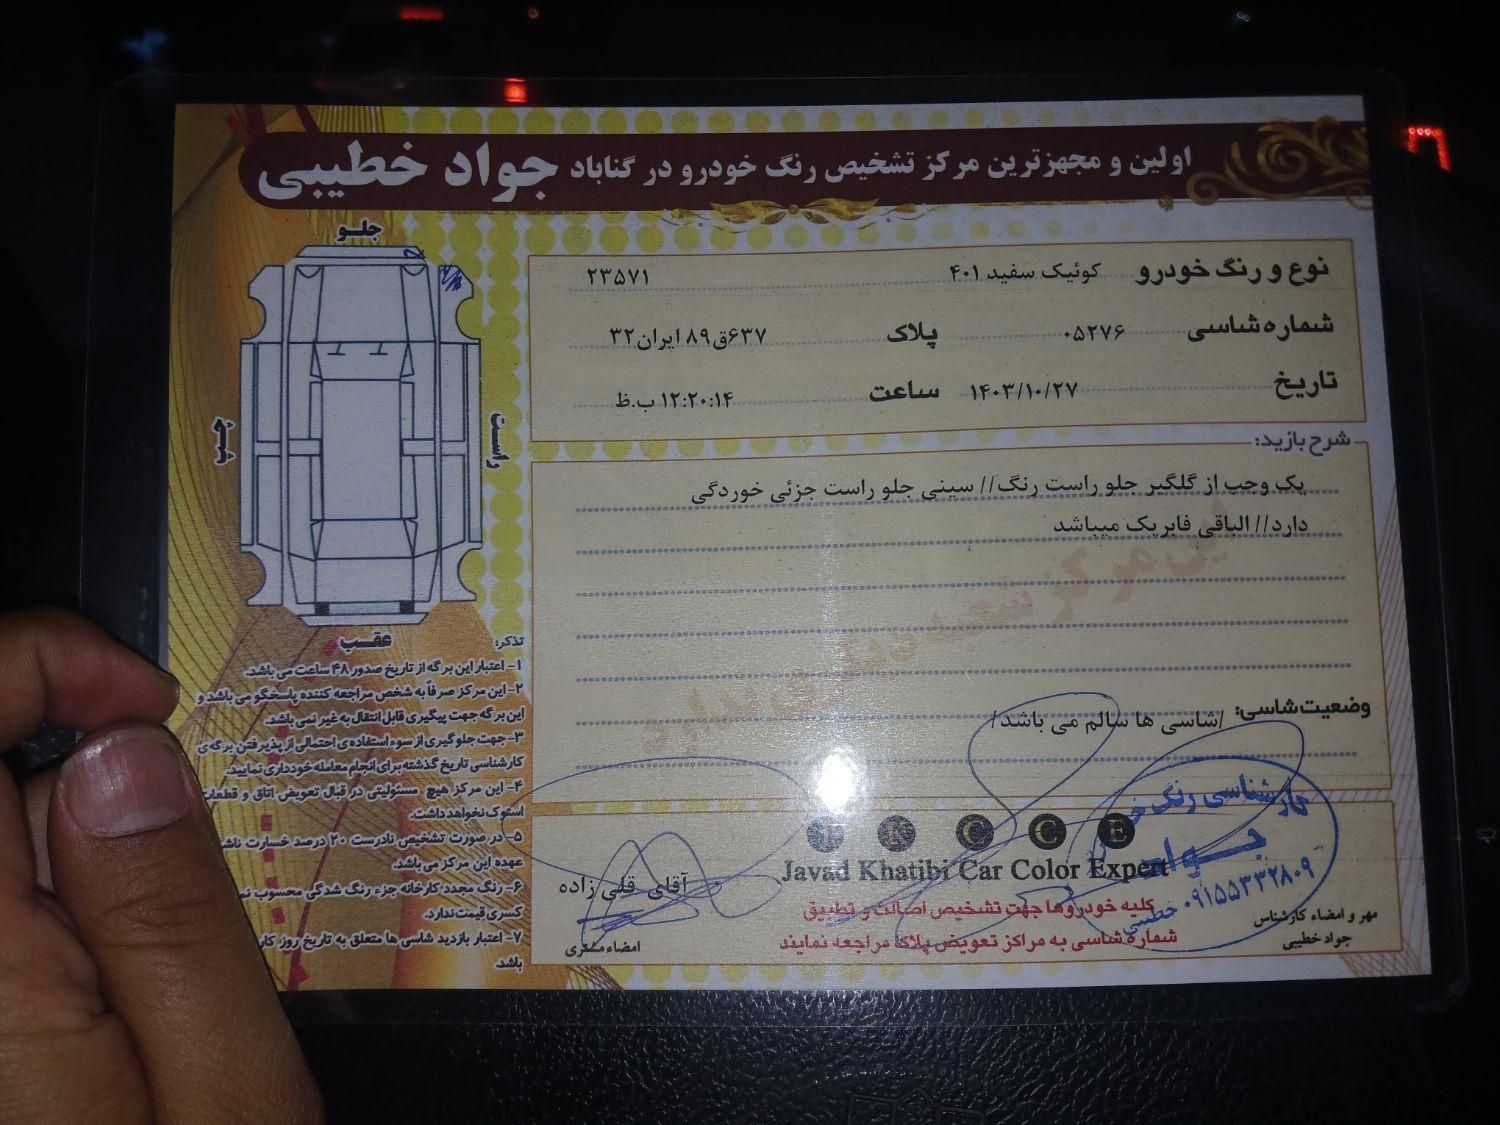 اولین و مجهزترین مرکز تشخیص رنگ خودرو در گناباد جواد خطیبی
جلو
راست
چپ
عقب
نوع و رنگ خودرو کوئیک سفید ۴۰۱ ۲۳۵۷۱
شماره شاسی ۰۵۲۷۶ پلاک ۶۳۷ق۸۹ ایران۳۲
تاریخ ۱۴۰۳/۱۰/۲۷ ساعت ۱۲:۲۰:۱۴ ب.ظ
شرح بازید:
یک وجب از گلگیر جلو راست رنگ// سینی جلو راست جزئی خوردگی
دارد// الباقی فابریک میباشد
وضعیت شاسی: /شاسی ها سالم می باشد/
تذکر:
۱- اعتبار این برگه از تاریخ صدور ۴۸ ساعت می باشد.
۲- این مرکز صرفاً به شخص مراجعه کننده پاسخگو می باشد و
این برگه جهت پیگیری قابل انتقال به غیر نمی باشد.
۳- جهت جلوگیری از سوء استفاده ی احتمالی از پذیرفتن برگه ی
کارشناسی تاریخ گذشته برای انجام معامله خودداری نمایید.
۴- این مرکز هیچ مسئولیتی در قبال تعویض اتاق و قطعات
استوک نخواهد داشت.
۵- در صورت تشخیص نادرست ۲۰ درصد خسارت
عهده این مرکز می باشد.
۶- رنگ مجدد کارخانه جزء رنگ شدگی محسوب
کسری قیمت ندارد.
۷- اعتبار بازدید شاسی ها متعلق به تاریخ روز
باشد.
J K C C E
Javad Khatibi Car Color Expert
کلیه خودروها جهت تشخیص اصالت و تطبیق
شماره شاسی به مراکز تعویض پلاک مراجعه نمایند
آقای قلی زاده
امضاء مشتری
مهر و امضاء کارشناس
جواد خطیبی
کارشناسی رنگ
جواد
خطیبی ۰۹۱۵۵۳۳۲۸۰۹